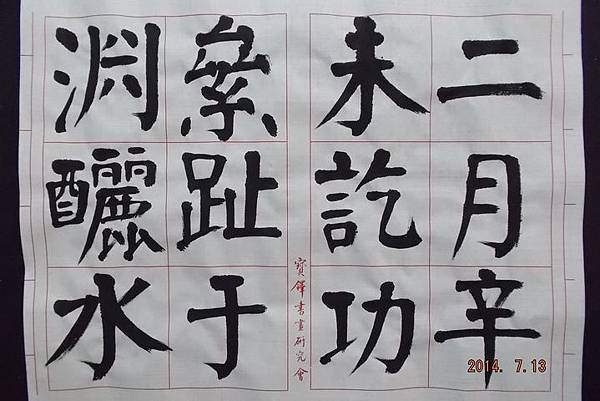 二月辛
未訖功
寶鐸書畫研究會
絫趾于
渊釃水
2014. 7.13